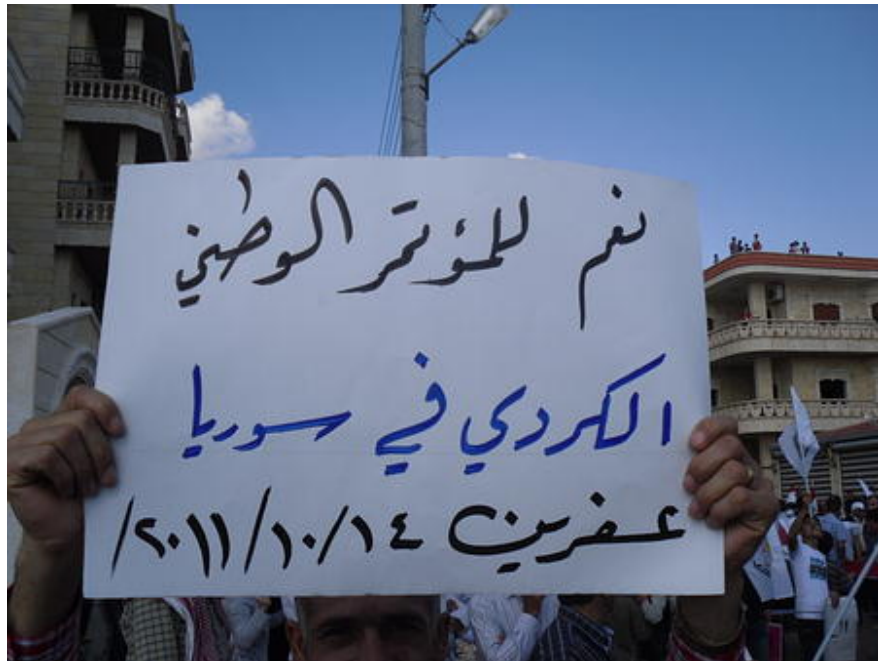 نعم للمؤتمر الوطني
الكردي في سوريا
عفرين ١٤/١٠/٢٠١١/